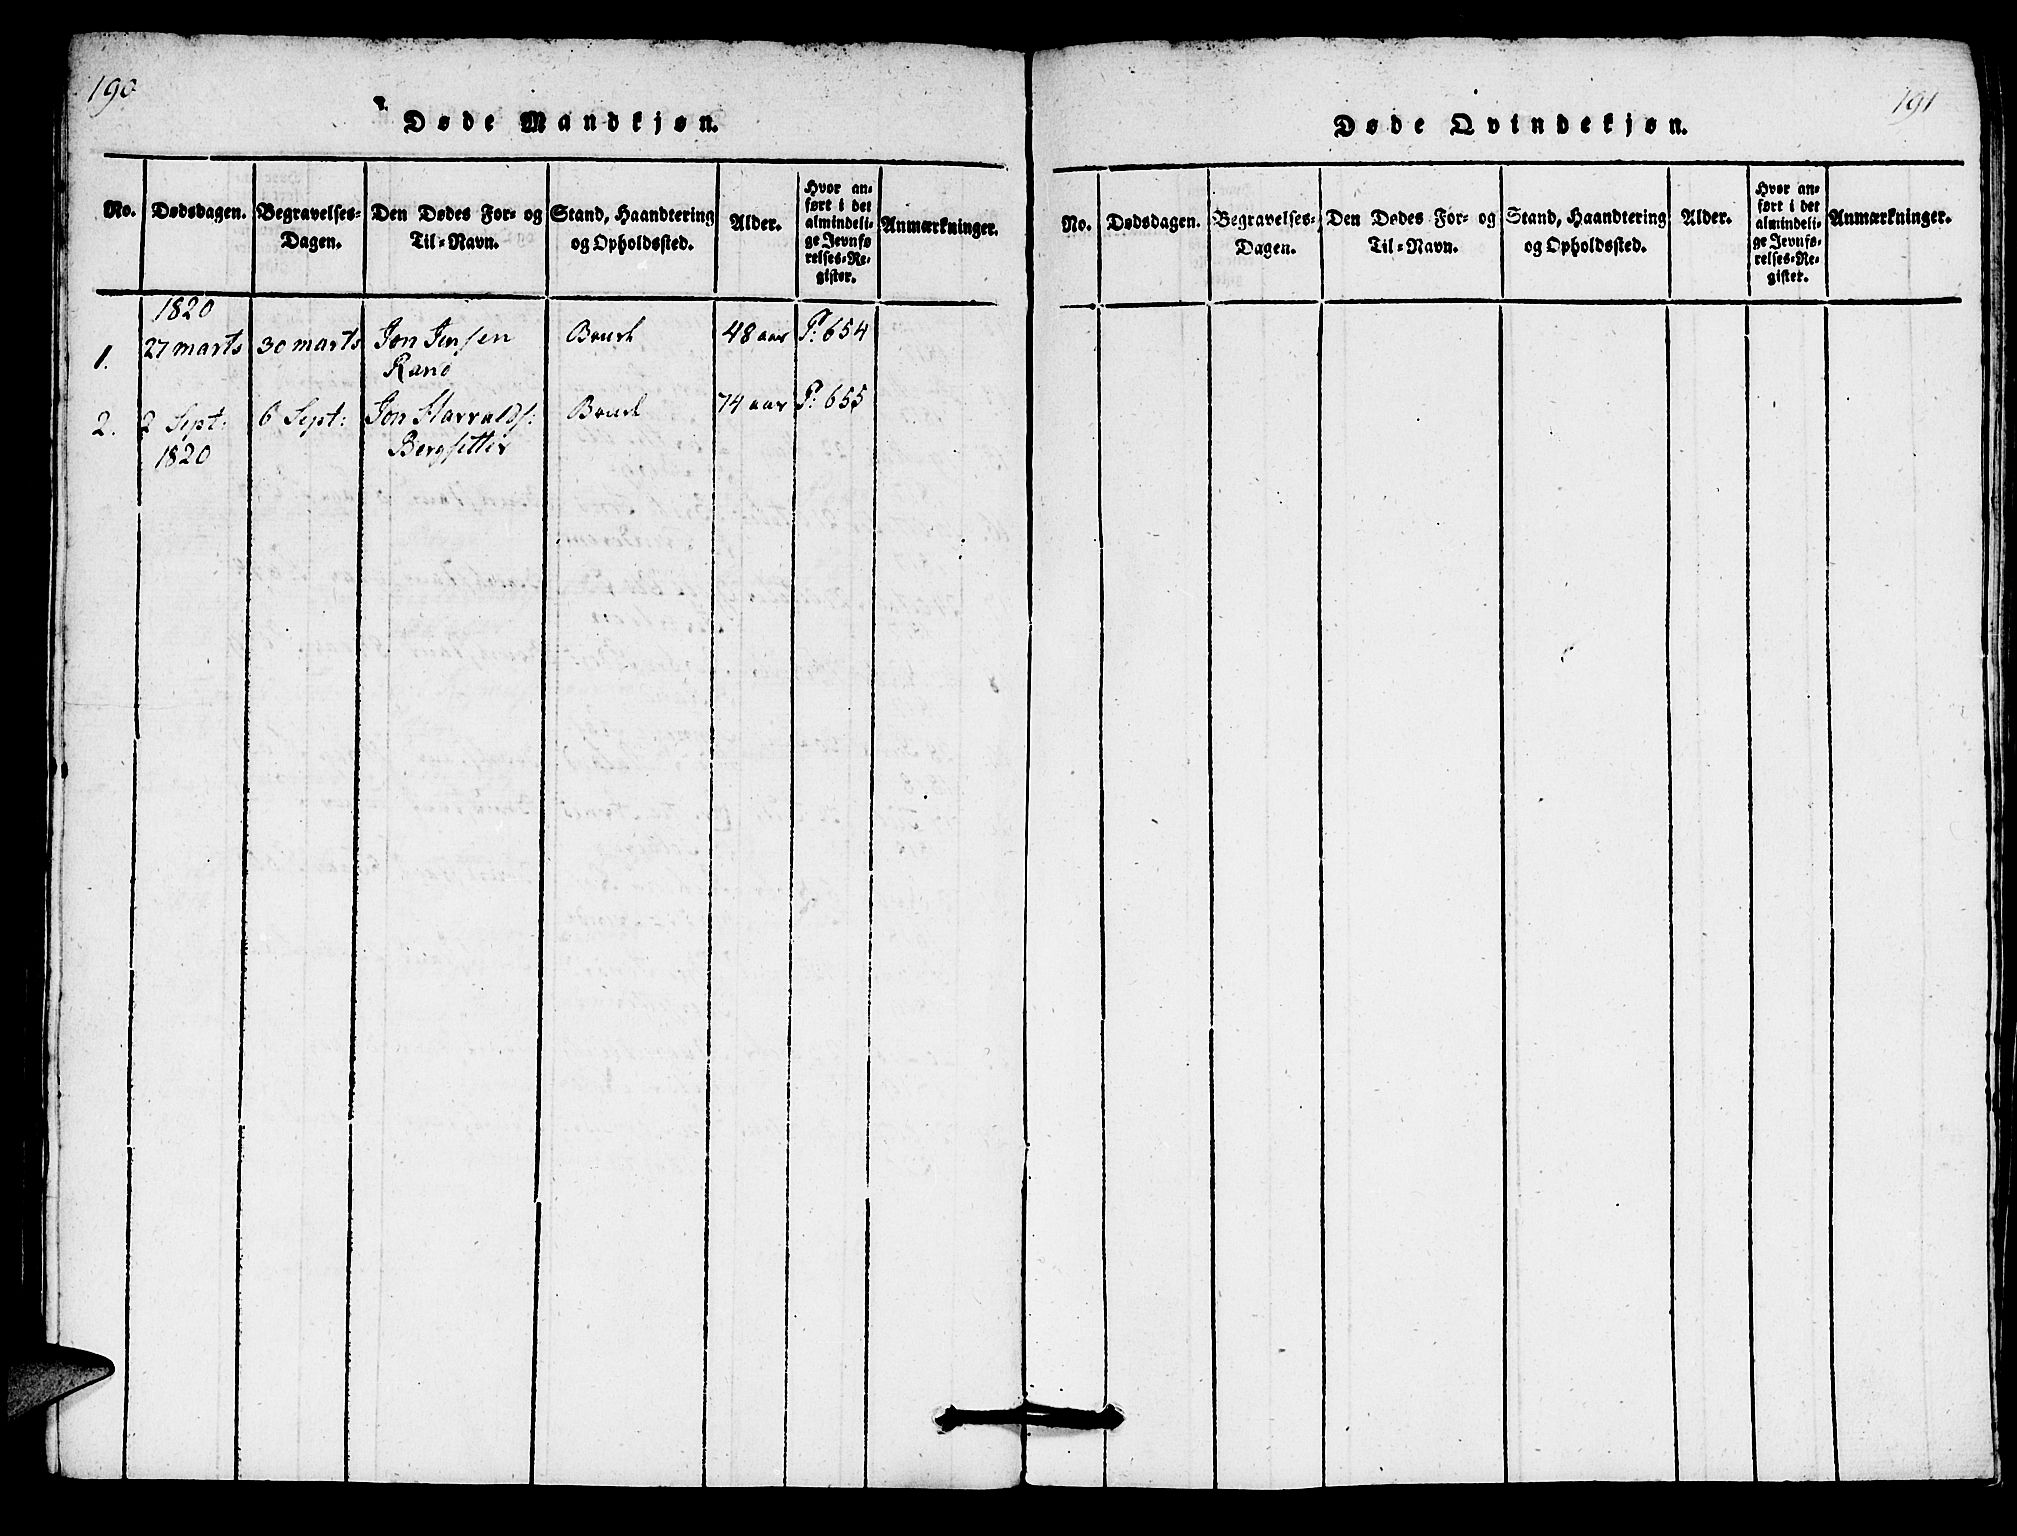 190
Døde Mandkjøn.
No.
Dødsdagen.
Begravelses-
Dagen.
Den Dødes For- og
Til-Navn.
Stand, Haandtering
og Opholdssted.
Alder.
Hvor an-
ført i det
almindeli-
ge Jevnfø
relses-Re-
gister.
Anmærkninger.
1820
1. 27 marts 30 marts Jon Jensen Bonde 48 aar P: 654
Rand
2. 2 Sept: 6 Sept: Jon Harralds: Bonde 74 aar P: 655
1820 Bergsetter
191
Døde Qvindekjøn.
No.
Dødsdagen.
Begravelses-
Dagen.
Den Dødes For- og
Til-Navn.
Stand, Haandtering
og Opholdssted.
Alder.
Hvor an-
ført i det
almindeli-
ge Jevnfø-
relses-Re-
gister.
Anmærkninger.